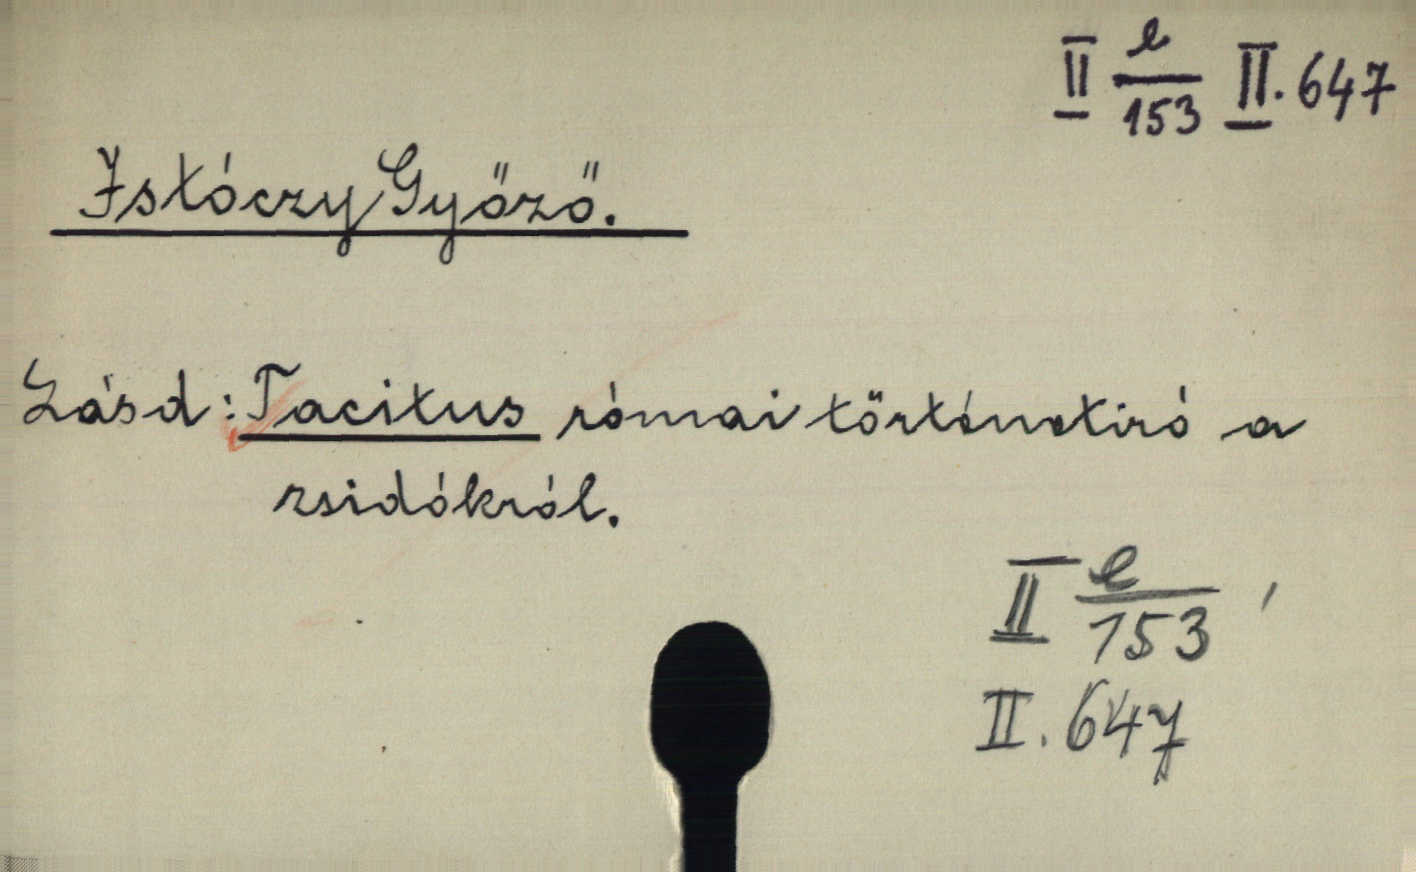 II e/153 II. 647
Istóczy Győző.
Lásd: Tacitus római történetiró a
zsidókról.
II e/153
II. 647